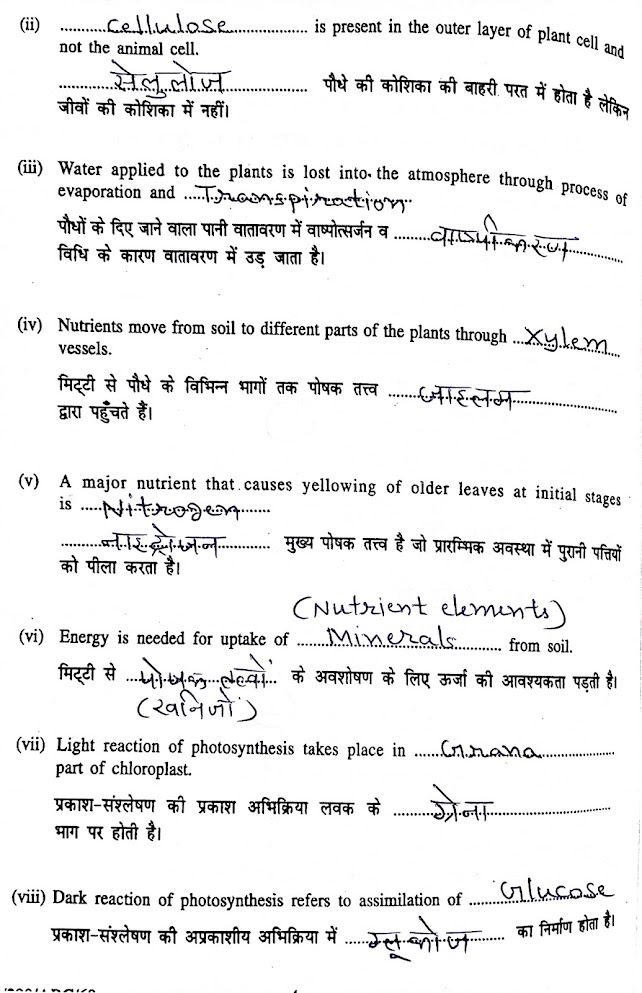 (ii) ..........Cellulose.................. is present in the outer layer of plant cell and
not the animal cell.
............सेलुलोज.................. पौधे की कोशिका की बाहरी परत में होता है लेकिन
जीवों की कोशिका में नहीं।
(iii) Water applied to the plants is lost into the atmosphere through process of
evaporation and .....Transpiration..
पौधों के दिए जाने वाला पानी वातावरण में वाष्पोत्सर्जन व ........वाष्पीकरण............
विधि के कारण वातावरण में उड़ जाता है।
(iv) Nutrients move from soil to different parts of the plants through ...Xylem....
vessels.
मिट्टी से पौधे के विभिन्न भागों तक पोषक तत्त्व ........जाइलम......................
द्वारा पहुँचते हैं।
(v) A major nutrient that causes yellowing of older leaves at initial stages
is .....Nitrogen.......
..........नाइट्रोजन............ मुख्य पोषक तत्त्व है जो प्रारम्भिक अवस्था में पुरानी पत्तियों
को पीला करता है।
(Nutrient elements)
(vi) Energy is needed for uptake of .......Minerals.......... from soil.
मिट्टी से ...पोषक तत्वों... के अवशोषण के लिए ऊर्जा की आवश्यकता पड़ती है।
(खनिजों)
(vii) Light reaction of photosynthesis takes place in ......Grana................
part of chloroplast.
प्रकाश-संश्लेषण की प्रकाश अभिक्रिया लवक के .........ग्रेना........................
भाग पर होती है।
(viii) Dark reaction of photosynthesis refers to assimilation of .......Glucose
प्रकाश-संश्लेषण की अप्रकाशीय अभिक्रिया में ......ग्लूकोज........ का निर्माण होता है।